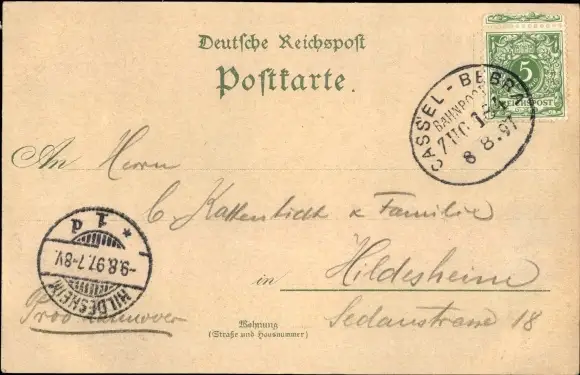 Deutsche Reichspost
Postkarte.
5
REICHSPOST
CASSEL - BEBRA
BAHNPOST
ZUG
8 8. 97
An Herrn
& Familie
in Hildesheim
Sedanstrasse 18
Wohnung
(Straße und Hausnummer)
Prov Hannover
HILDESHEIM
-9.8.97.7-8V.
* 1 d